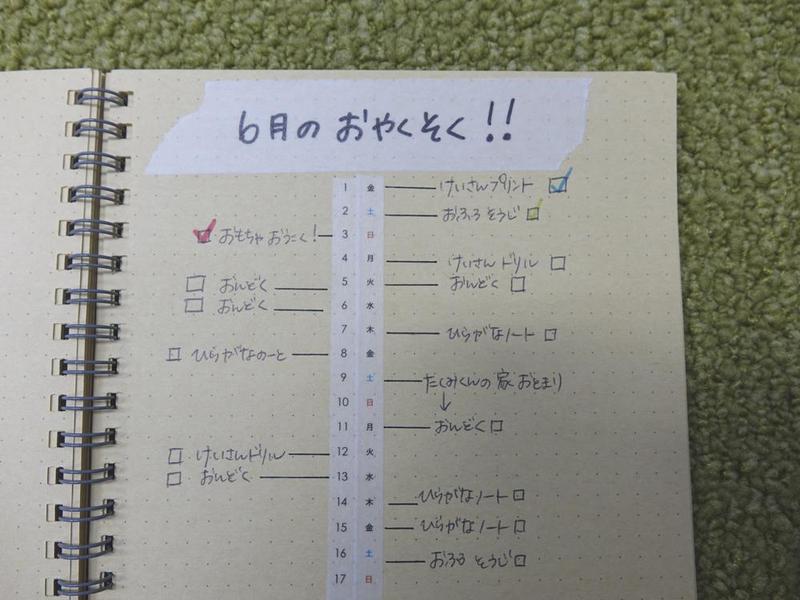 6月の おやくそく!!
1 金 けいさんプリント
2 土 おふろ そうじ
おもちゃ おうこく! 3 日
4 月 けいさんドリル
おんどく 5 火 おんどく
おんどく 6 水
7 木 ひらがなノート
ひらがなのーと 8 金
9 土 たくみくんの家 おとまり
10 日 ↓
11 月 おんどく
けいさんドリル 12 火
おんどく 13 水
14 木 ひらがなノート
15 金 ひらがなノート
16 土 おふろ そうじ
17 日